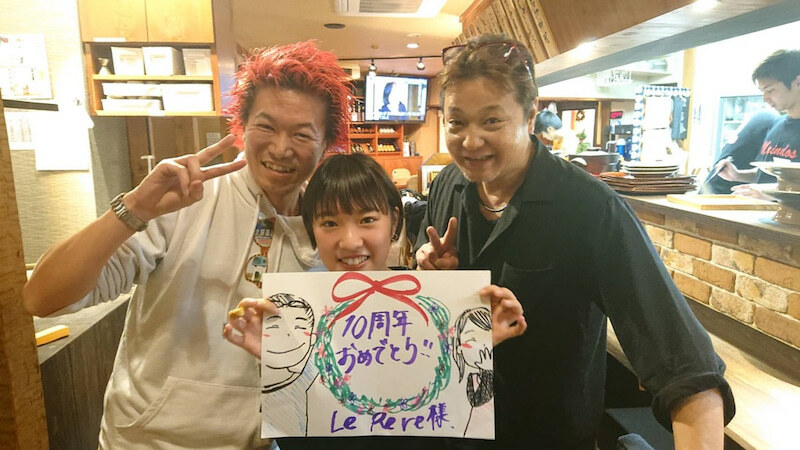 10周年
おめでとう!!
Le Pere様